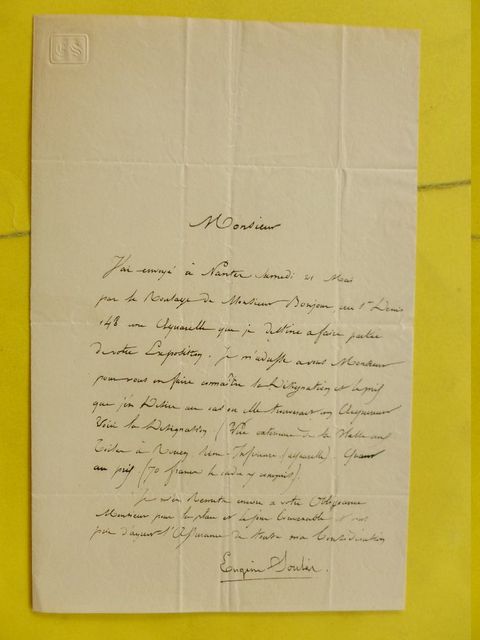 ES
Monsieur
J'ai envoyé à Nantes Samedi 21 Mai
par le Roulage de Monsieur Bonjour, rue St Denis
148 une Aquarelle que je destine a faire partie
de votre Exposition. Je m'adresse a vous Monsieur
pour vous en faire connaître la Désignation et le prix
que j'en desire au cas ou elle trouverait un Acquereur
Voici la Désignation (Vue exterieure de la Halle aux
Toiles à Rouen Seine Inferieure (aquarelle). Quant
au prix (70 francs le cadre y compris).
Je m'en remets encore a votre Obligeance
Monsieur pour la place et le jour Convenable et vous
prie d'agréer l'Assurance de toute ma Considération
Eugène Soulès.